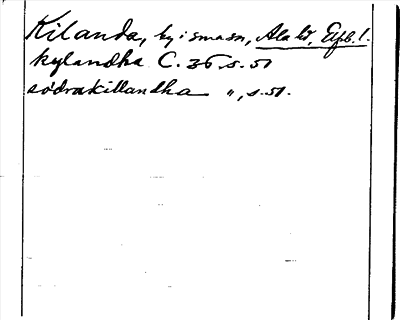 Kilanda, by i smasn, Ale hd, Elfsb. l.
kylandha C. 36 s. 51
södrakillandha „ , s. 51.